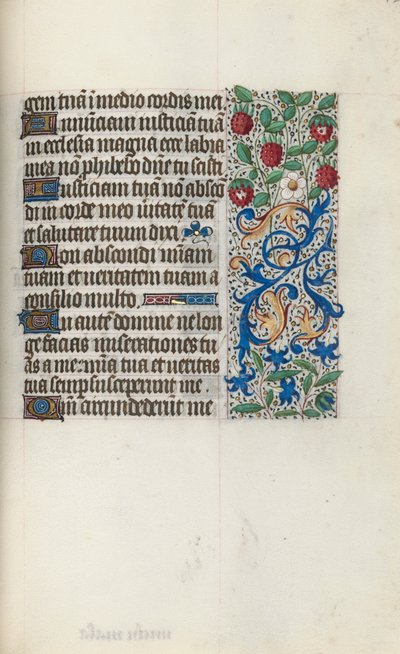 gem tuã ĩ medio cordis mei
Annunciavi iusticiã tuã
in ecclesia magna ecce labia
mea nõ phibebo dñe tu scisti
Iusticiam tuã nõ absco
di in corde meo ṽitatẽ tuã
et salutare tuum dixi
Non abscondi miam
tuam et veritatem tuam a
consilio multo.
Tu autẽ domine ne lon
ge facias miserationes tu
as a me: mĩa tua et veritas
tua semp susceperunt me.
Qm circumdederũt me